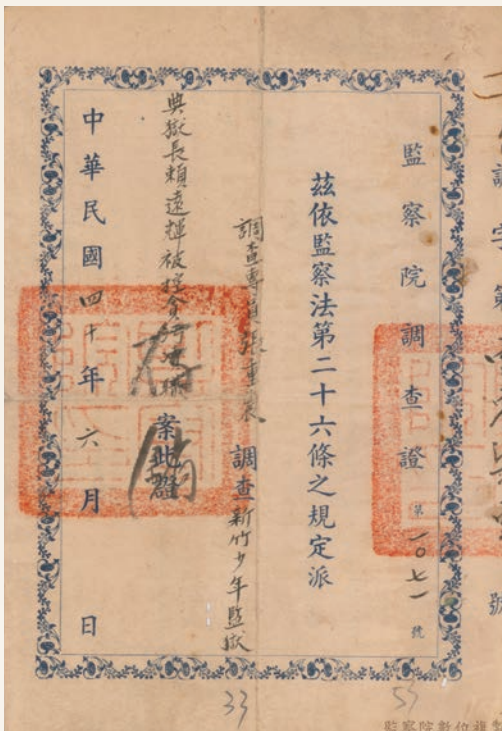 字第
號
監察院調查證 第一〇七一號
茲依監察法第二十六條之規定派
調查專員張重 調查新竹少年監獄
典獄長賴遠輝被控貪 案此證
存銷
中華民國四十年六月 日
33
監察院數位複製